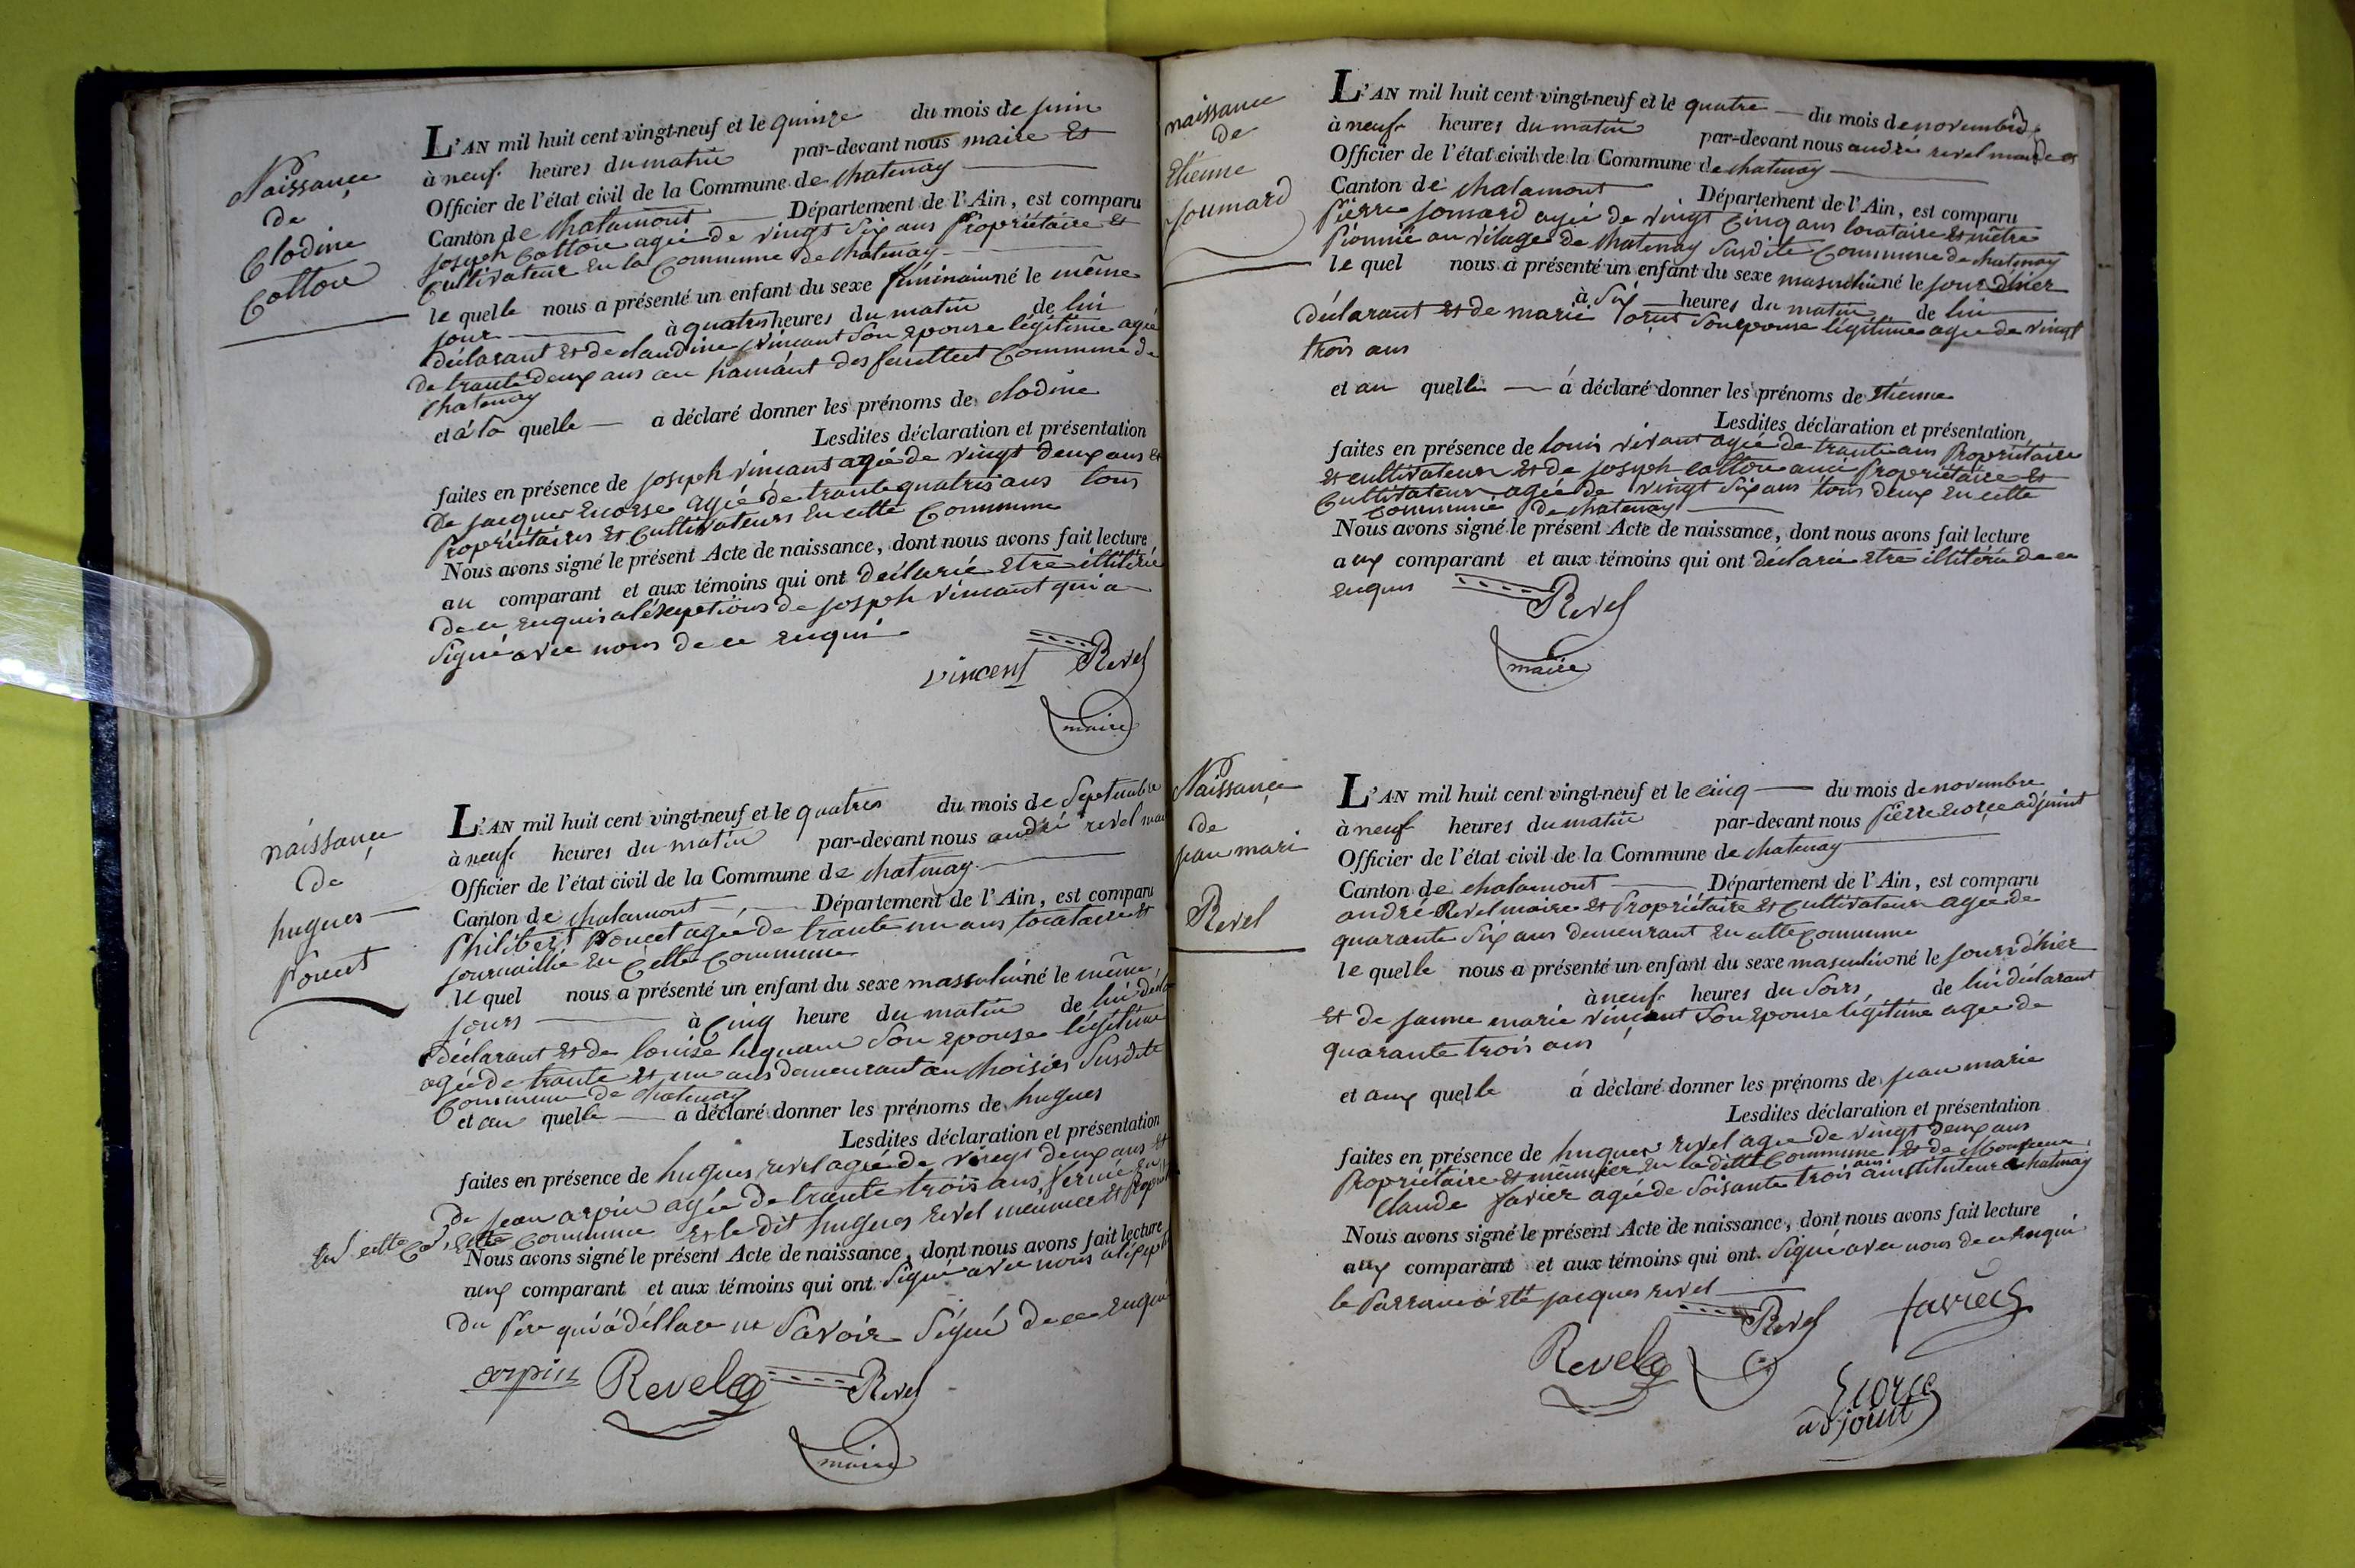 Naissance
de
Clodine
Cottou
L'AN mil huit cent vingt-neuf et le quinze du mois de juin
à neuf heures du matin par-devant nous maire Et
Officier de l'état civil de la Commune de chatenay
Canton de chalamont Département de l'Ain, est comparu
joseph Cottou agée de vingt six ans Propriétaire Et
Cultivateur En la Commune de chatenay
le quelle nous a présenté un enfant du sexe féminain né le même
jour à quatres heures du matin de lui
déclarant Et de claudine vincant son epouse légitime agée
de trante deux ans au hamaut des feuillect Commune de
chatenay
et à la quelle a déclaré donner les prénoms de clodine
Lesdites déclaration et présentation
faites en présence de joseph vincant agée de vingt deux ans Et
De jacques Ecorse agée de trante quatres ans tous
Propriétaires Et Cultivateurs En cette Commune
Nous avons signé le présent Acte de naissance, dont nous avons fait lecture
au comparant et aux témoins qui ont déclarée Etre illitérée
de ce Enquis a l'éxeptions de joseph vincant qui a
signé avec nous de ce Enqui
vincent Revel
maire
naissance
de
hugues
Poncet
L'AN mil huit cent vingt-neuf et le quatres du mois de Septembre
à neuf heures du matin par-devant nous andré revel mai
Officier de l'état civil de la Commune de chatenay
Canton de chalamont Département de l'Ain, est comparu
Philibert Poncet agée de trante un ans locataire Et
journaillie En Cette Commune
le quel nous a présenté un enfant du sexe massculin né le même
jours à Cinq heure du matin de lui
déclarant Et de louise son epouse légitime
agée de trante Et un ans demeurant au Choisies susdite
Commune de chatenay
et au quelle a déclaré donner les prénoms de hugues
Lesdites déclaration et présentation
faites en présence de hugues revel agée de vingt deux ans Et
De jean arpin agée de trante trois ans fermié En
cette Commune Et le dit hugues revel meunier Et
En cette
Nous avons signé le présent Acte de naissance, dont nous avons fait lecture
aux comparant et aux témoins qui ont signé avec nous a
du Père qui a déllare ne savoir signé de ce Enqui
arpin Revel Revel
maire
naissance
de
Etienne
joumard
L'AN mil huit cent vingt-neuf et le quatre du mois de novembre
à neuf heures du matin par-devant nous andré revel maire Et
Officier de l'état civil de la Commune de chatenay
Canton de chalamont Département de l'Ain, est comparu
Pierre jomard agée de vingt Cinq ans locataire Et
au vilage de chatenay susdite Commune de chatenay
le quel nous à présenté un enfant du sexe masculin né le jour d'hier
à six heures du matin de lui
déclarant Et de marie son epouse légitime agée de vingt
trois ans
et au quelle à déclaré donner les prénoms de Etienne
Lesdites déclaration et présentation
faites en présence de louis vivant agée de trante ans Propriétaire
Et cultivateur Et de joseph cottou Propriétaire Et
Cultivateur agée de vingt six ans tous deux En cette
Commune de chatenay
Nous avons signé le présent Acte de naissance, dont nous avons fait lecture
aux comparant et aux témoins qui ont déclarée Etre illitérée de ce
Enquis
Revel
maire
Naissance
de
jean mari
Revel
L'AN mil huit cent vingt-neuf et le cinq du mois de novembre
à neuf heures du matin par-devant nous Pierre Ecorce adjoint
Officier de l'état civil de la Commune de chatenay
Canton de chalamont Département de l'Ain, est comparu
andré Revel maire Et Propriétaire Et Cultivateur agée de
quarante six ans demeurant En cette Commune
le quelle nous a présenté un enfant du sexe masculin né le jour d'hier
à neuf heures du soirs de lui déclarant
Et de janne marie vincent son epouse légitime agée de
quarante trois ans
et aux quelle à déclaré donner les prénoms de jean marie
Lesdites déclaration et présentation
faites en présence de hugues revel agée de vingt deux ans
Propriétaire Et meunier En la ditte Commune Et de
Claude favier agée de soisante trois ans instituteur a chatenay
Nous avons signé le présent Acte de naissance, dont nous avons fait lecture
aux comparant et aux témoins qui ont signé avec nous de ce Enqui
le Parrain a Eté jacques revel
Revel Revel favier
Ecorce
adjoint